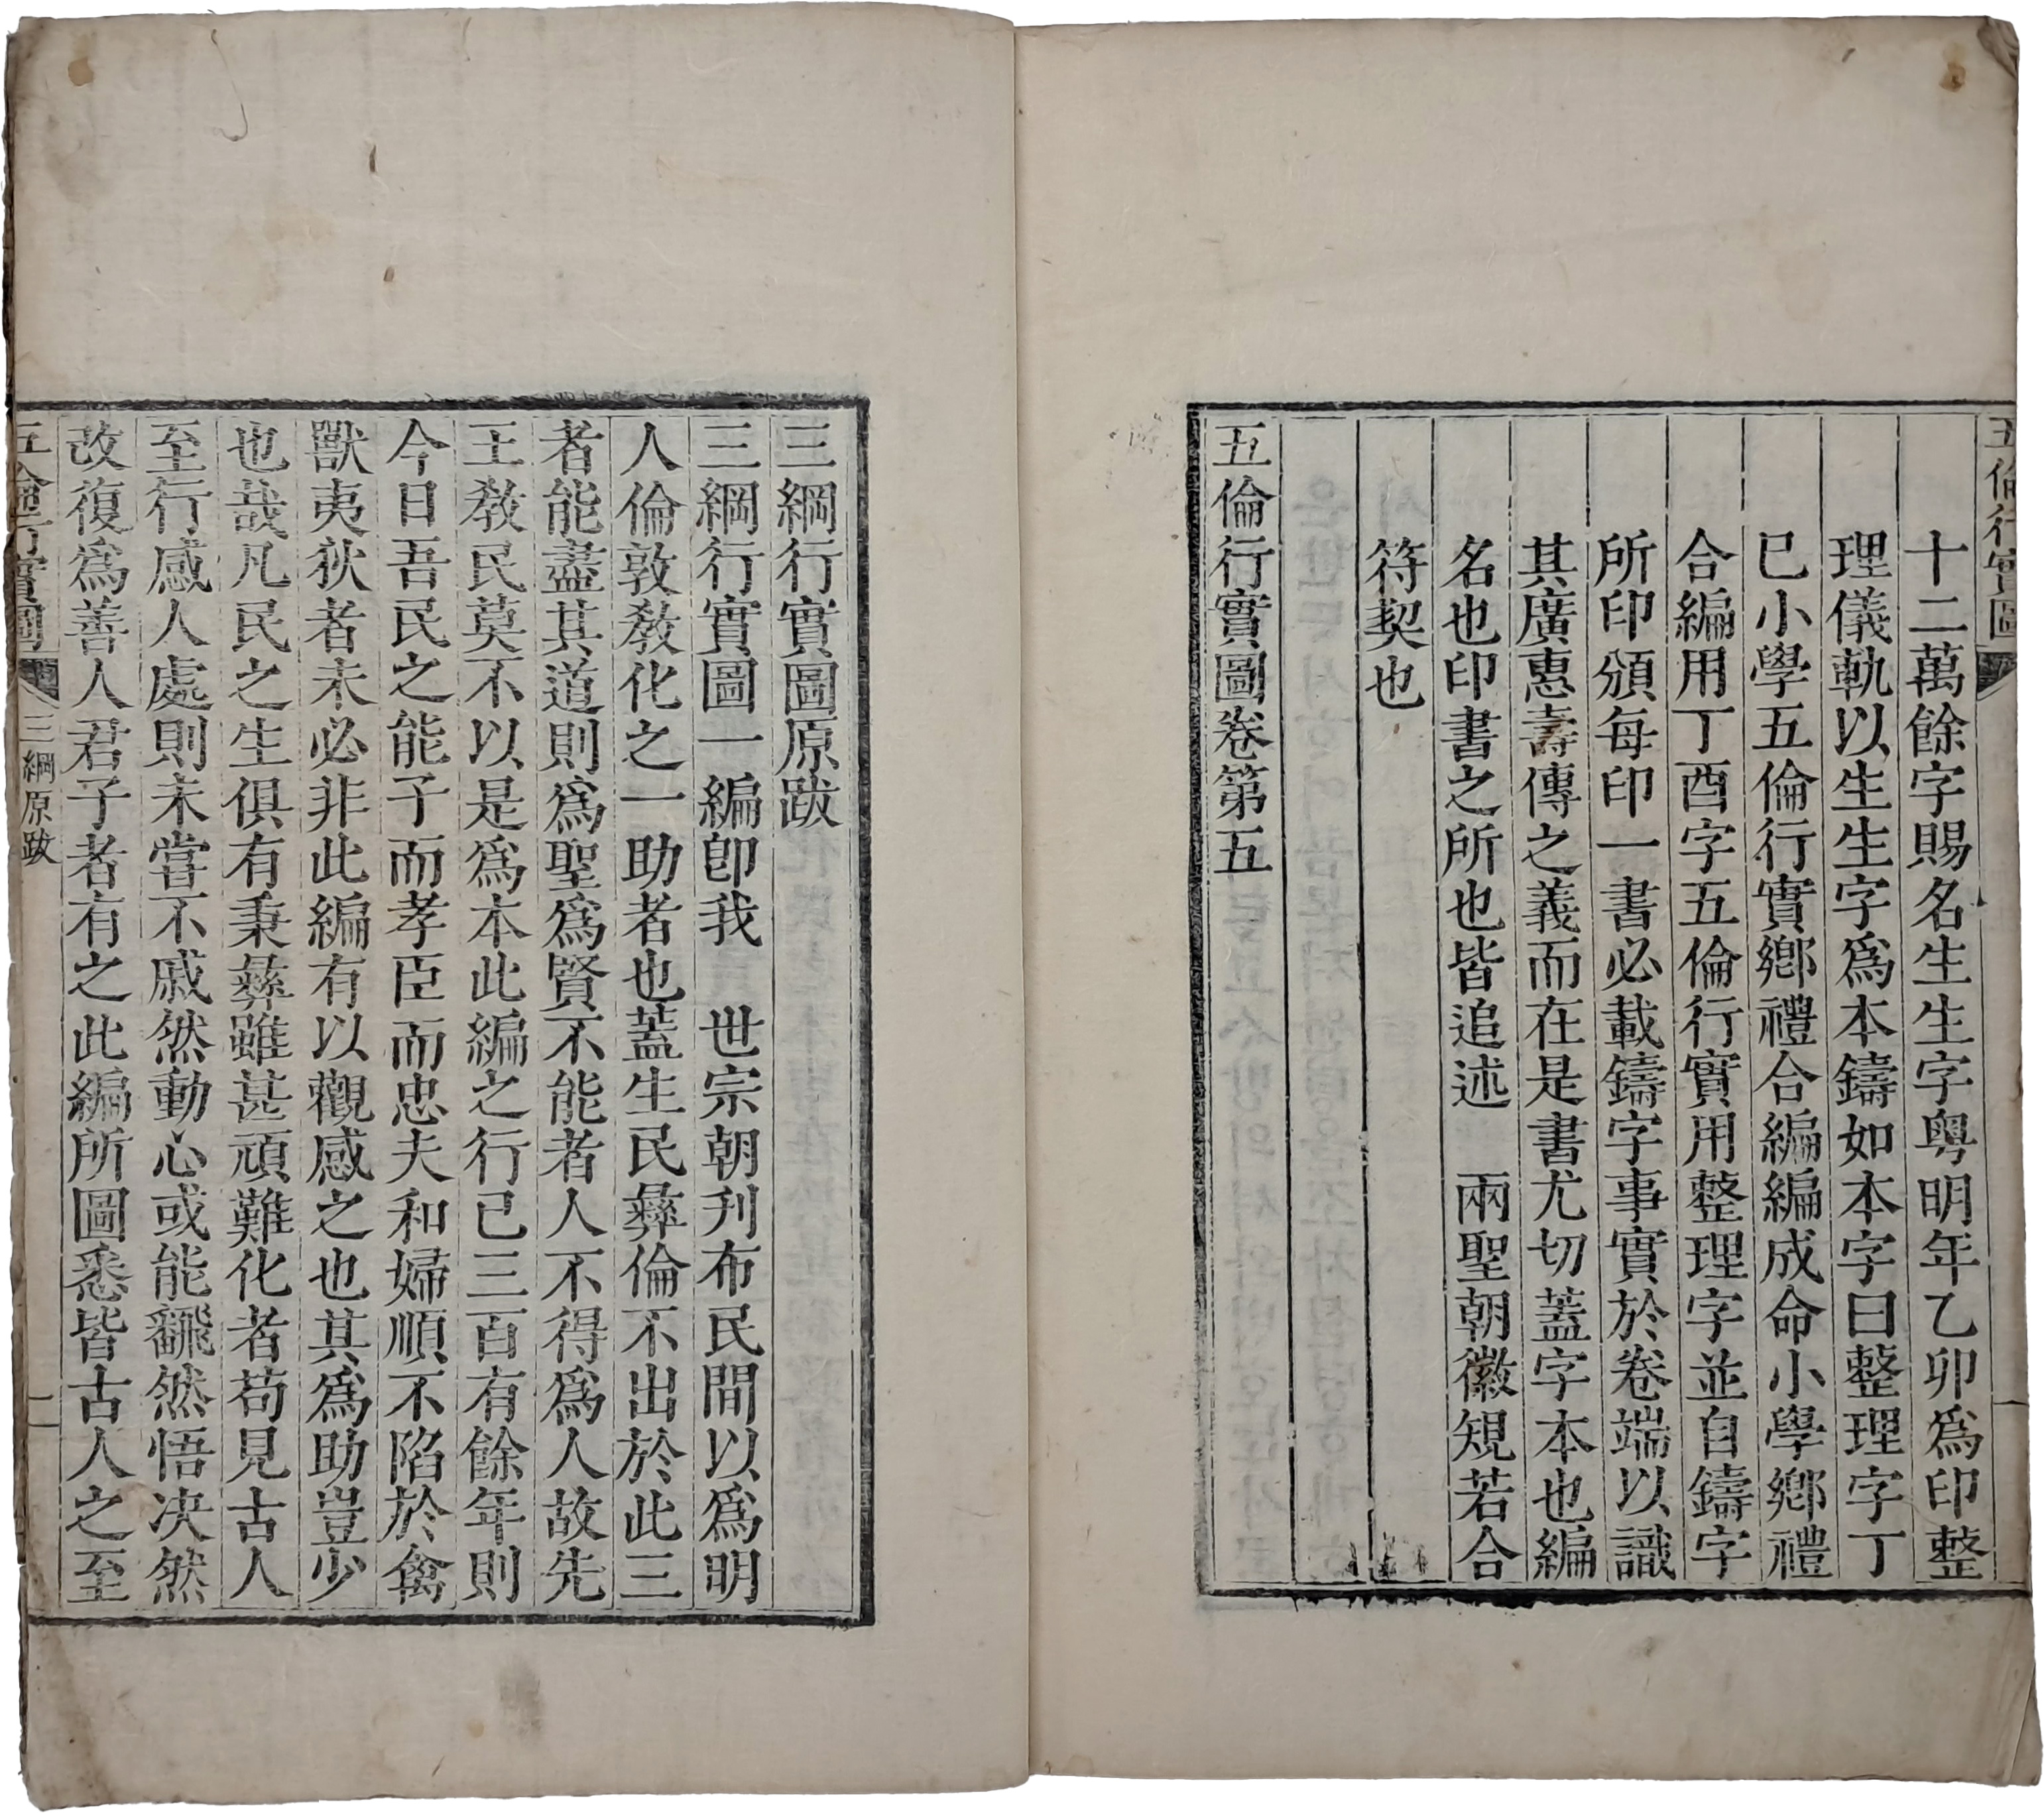 五倫行實圖
十二萬餘字賜名生生字粤明年乙卯爲印整
理儀軌以生生字爲本鑄如本字曰整理字丁
巳小學五倫行實鄉禮合編編成命小學鄉禮
合編用丁酉字五倫行實用整理字並自鑄字
所印頒每印一書必載鑄字事實於卷端以識
其廣惠壽傳之義而在是書尤切蓋字本也編
名也印書之所也皆追述　兩聖朝徽規若合
符契也
五倫行實圖卷第五
三綱行實圖原跋
三綱行實圖一編卽我　世宗朝刋布民間以爲明
人倫敦敎化之一助者也蓋生民彝倫不出於此三
者能盡其道則爲聖爲賢不能者人不得爲人故先
王敎民莫不以是爲本此編之行已三百有餘年則
今日吾民之能子而孝臣而忠夫和婦順不陷於禽
獸夷狄者未必非此編有以觀感之也其爲助豈少
也哉凡民之生俱有秉彝雖甚頑難化者苟見古人
至行感人處則未嘗不戚然動心或能飜然悟决然
改復爲善人君子者有之此編所圖悉皆古人之至
五倫行實圖
三綱原跋
一